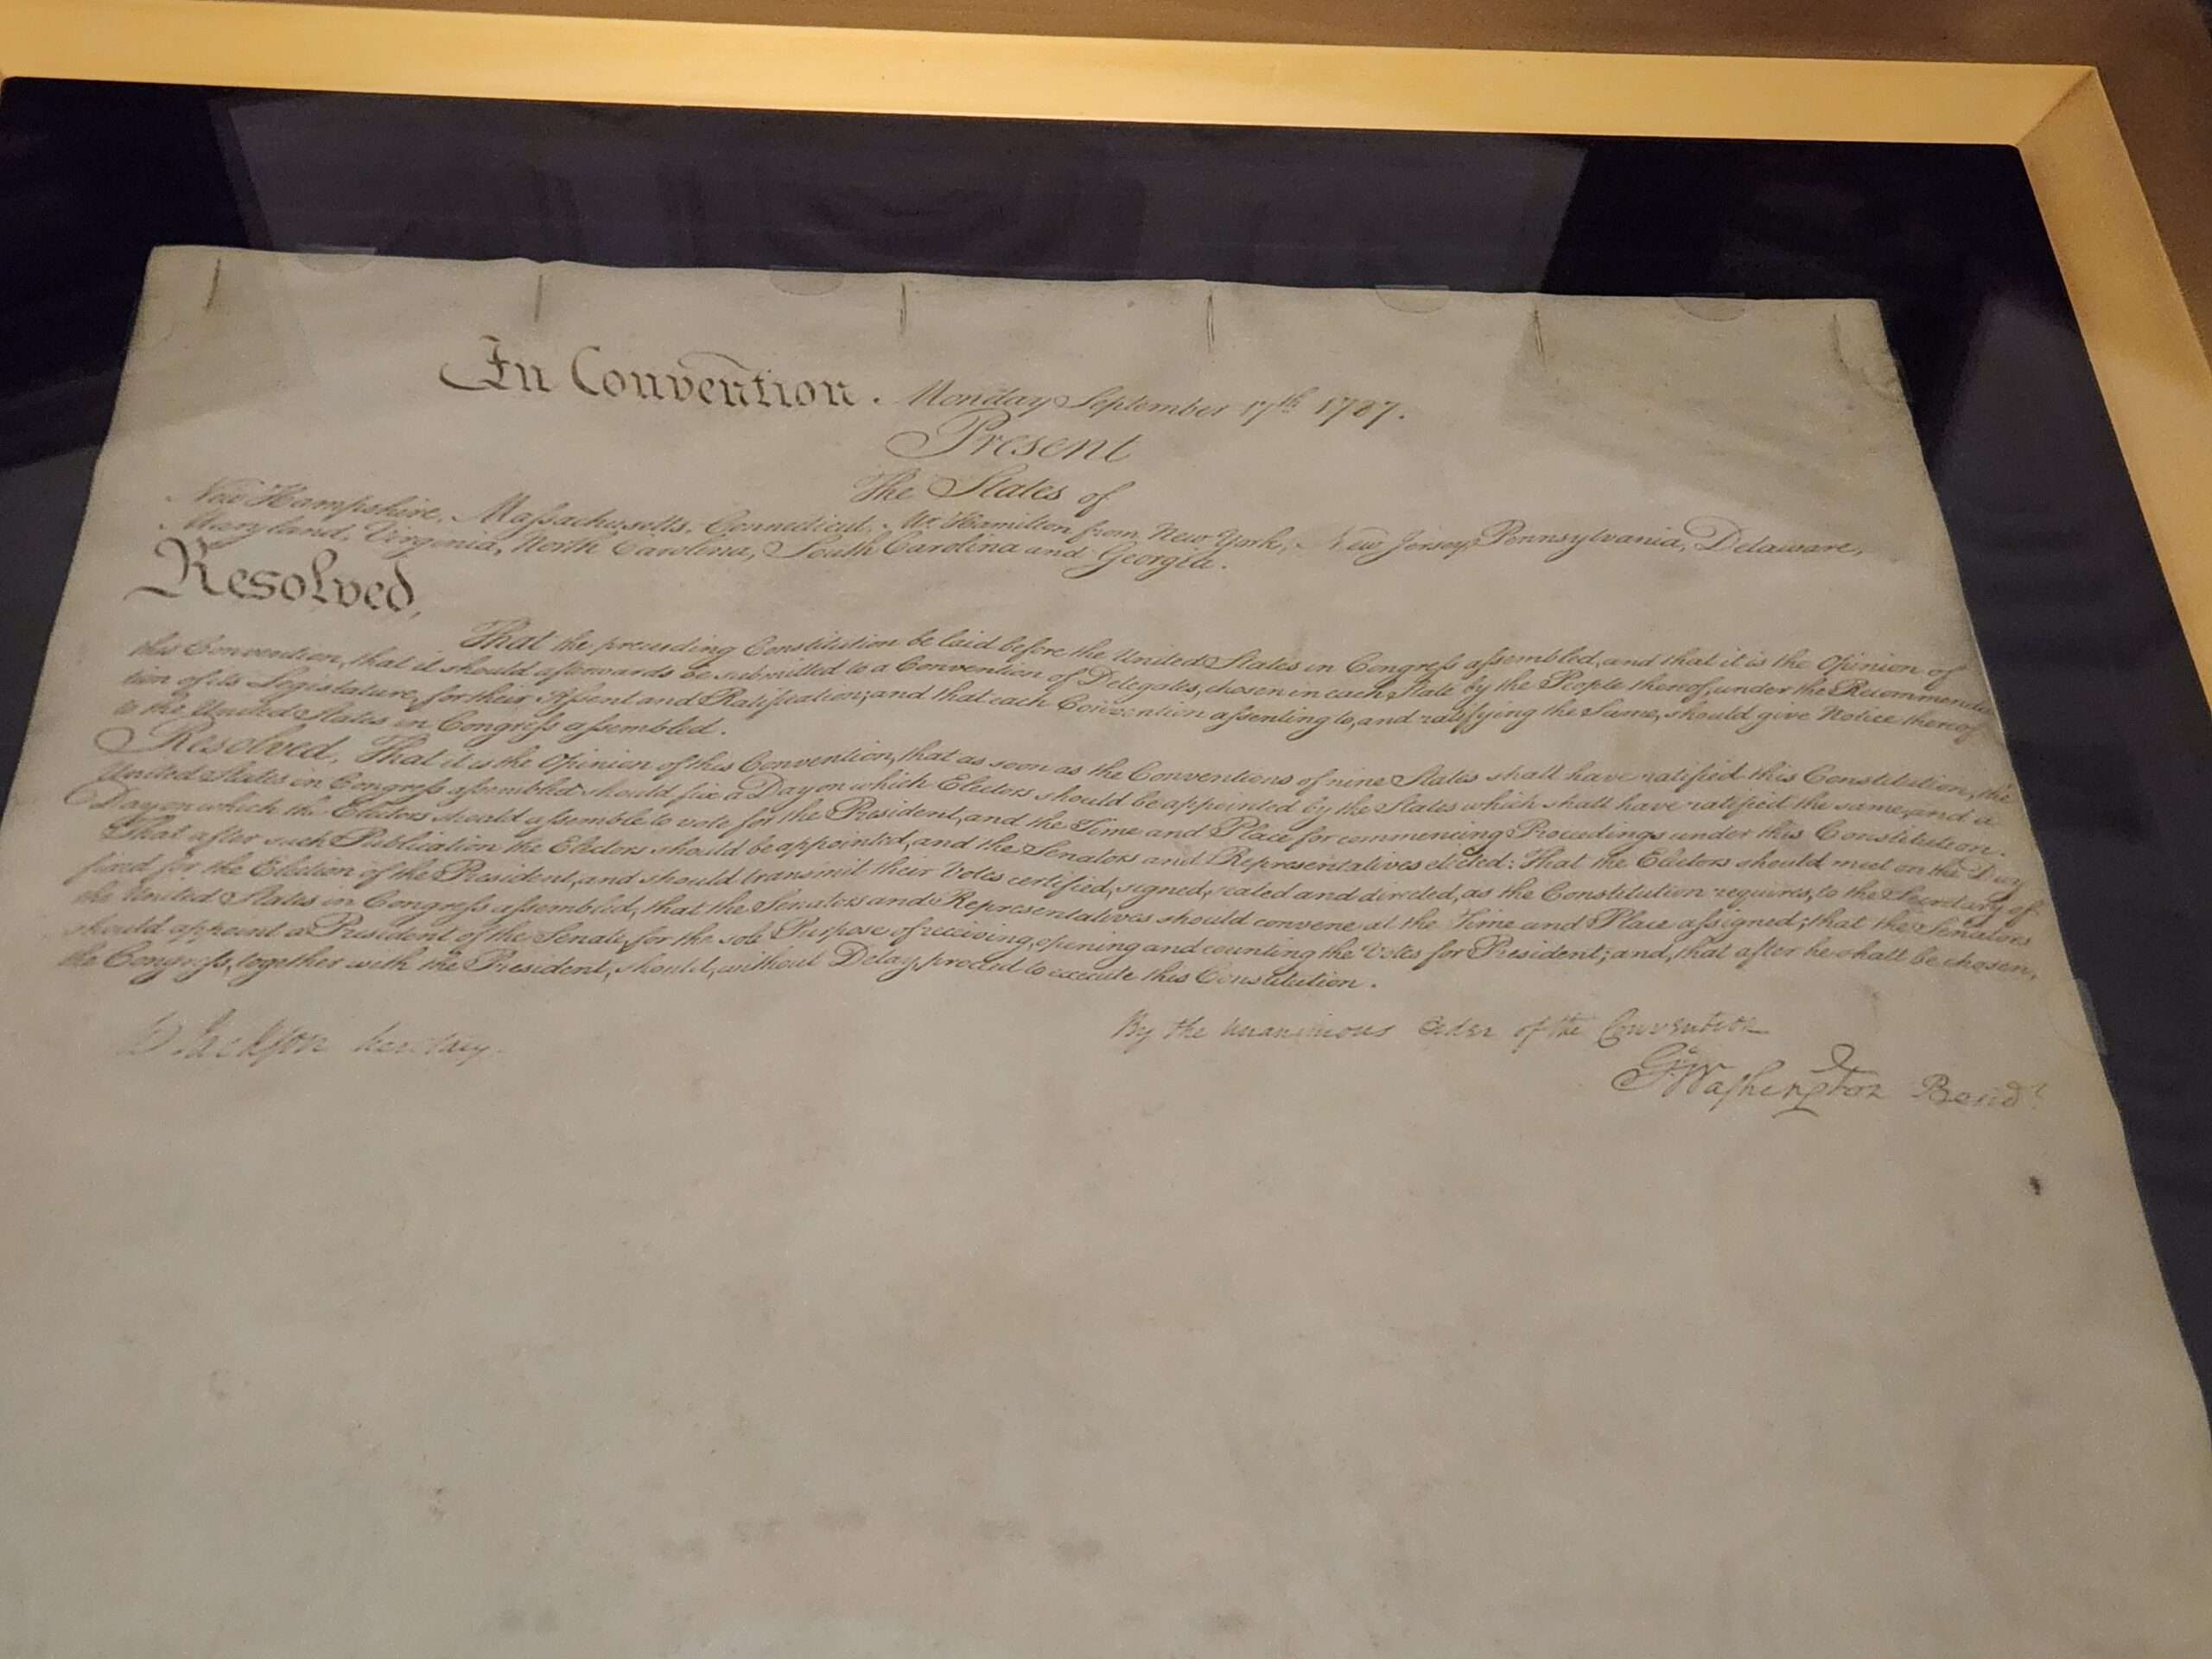 In Convention. Monday September 17th 1787.
Present
The States of
New Hampshire, Massachusetts, Connecticut, Mr. Hamilton from New York, New Jersey, Pennsylvania, Delaware,
Maryland, Virginia, North Carolina, South Carolina and Georgia.
Resolved,
That the preceeding Constitution be laid before the United States in Congress assembled, and that it is the Opinion of
this Convention, that it should afterwards be submitted to a Convention of Delegates, chosen in each State by the People thereof, under the Recommenda
tion of its Legislature, for their Assent and Ratification; and that each Convention assenting to, and ratifying the Same, should give Notice thereof
to the United States in Congress assembled.
Resolved, That it is the Opinion of this Convention, that as soon as the Conventions of nine States shall have ratified this Constitution, the
United States in Congress assembled should fix a Day on which Electors should be appointed by the States which shall have ratified the same, and a
Day on which the Electors should assemble to vote for the President, and the Time and Place for commencing Proceedings under this Constitution.
That after such Publication the Electors should be appointed, and the Senators and Representatives elected: That the Electors should meet on the Day
fixed for the Election of the President, and should transmit their Votes certified, signed, sealed and directed, as the Constitution requires, to the Secretary of
the United States in Congress assembled, that the Senators and Representatives should convene at the Time and Place assigned; that the Senators
should appoint a President of the Senate, for the sole Purpose of receiving, opening and counting the Votes for President; and, that after he shall be chosen,
the Congress, together with the President, should, without Delay, proceed to execute this Constitution.
By the Unanimous Order of the Convention
W Jackson Secretary.
Go. Washington Presidt.